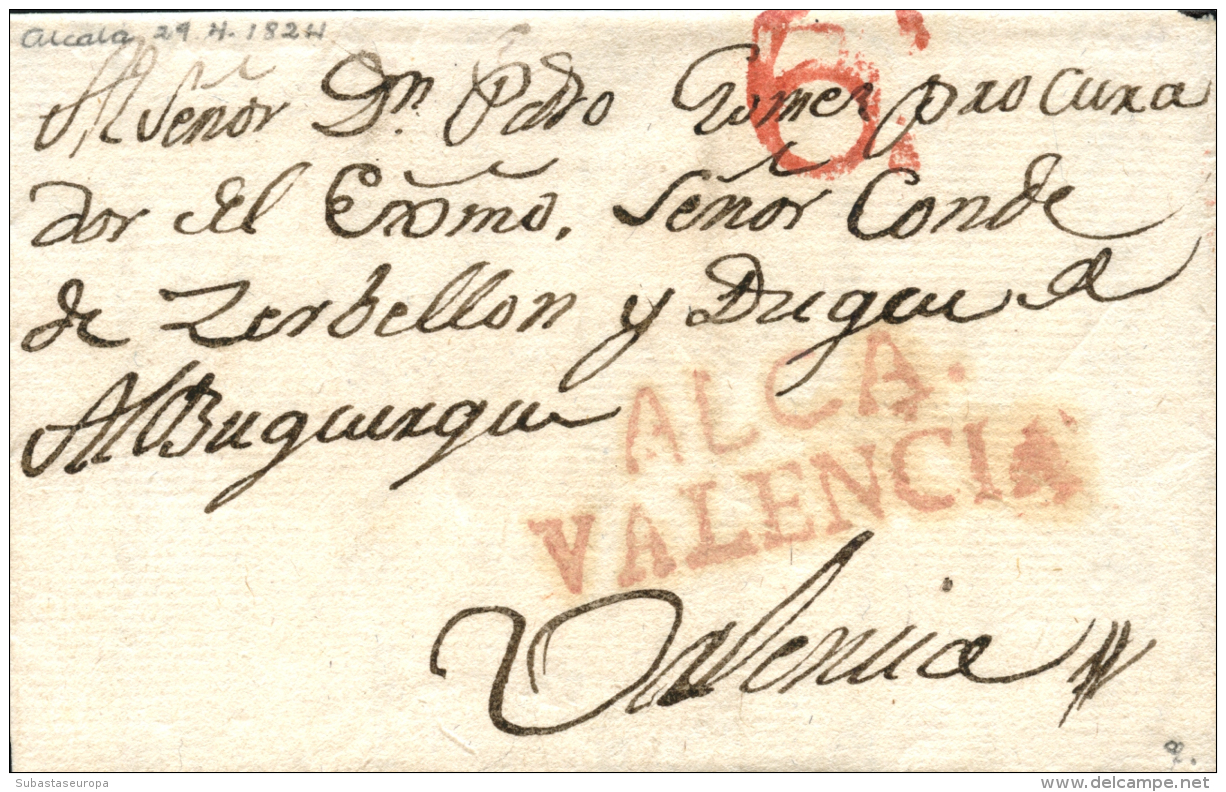 Alcala 29.4.1824
6
Al Señor Dn. Pdro Gomez procura
dor del Exmo. Señor Conde
de Zerbellon y Duque de
AlBuquerque
ALCA.
VALENCIA
Valencia
Subastaseuropa
delcampe.net